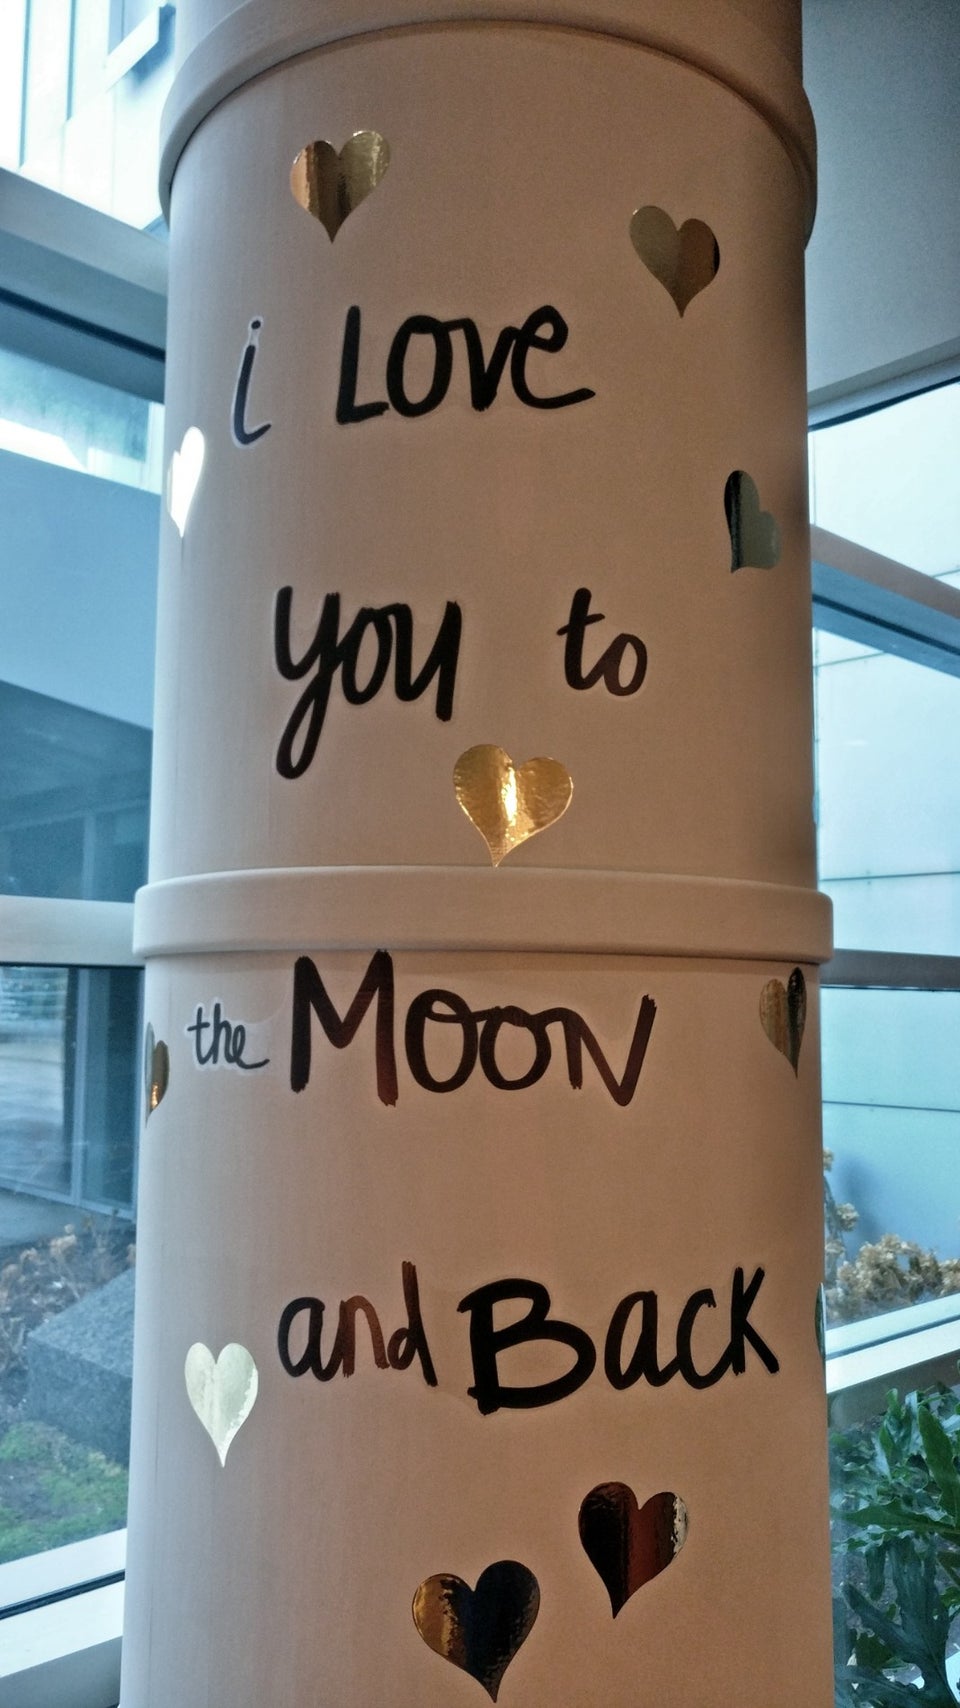 i Love
you to
the Moon
and Back